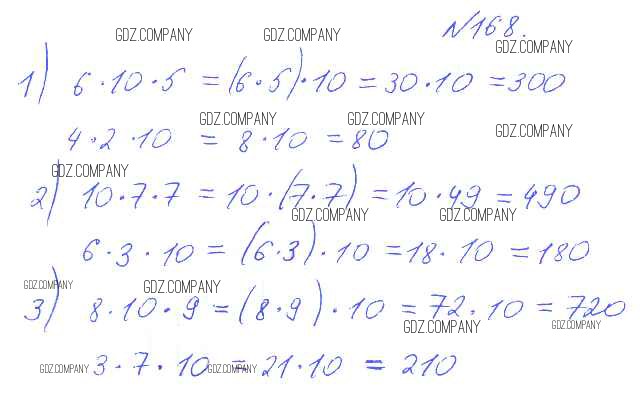 №168.
GDZ.COMPANY GDZ.COMPANY GDZ.COMPANY
1) 6·10·5 = (6·5)·10 = 30·10 = 300
GDZ.COMPANY GDZ.COMPANY GDZ.COMPANY
4·2·10 = 8·10 = 80
GDZ.COMPANY
2) 10·7·7 = 10·(7·7) = 10·49 = 490
GDZ.COMPANY GDZ.COMPANY
6·3·10 = (6·3)·10 = 18·10 = 180
GDZ.COMPANY GDZ.COMPANY
3) 8·10·9 = (8·9)·10 = 72·10 = 720
GDZ.COMPANY GDZ.COMPANY
3·7·10 = 21·10 = 210
GDZ.COMPANY GDZ.COMPANY